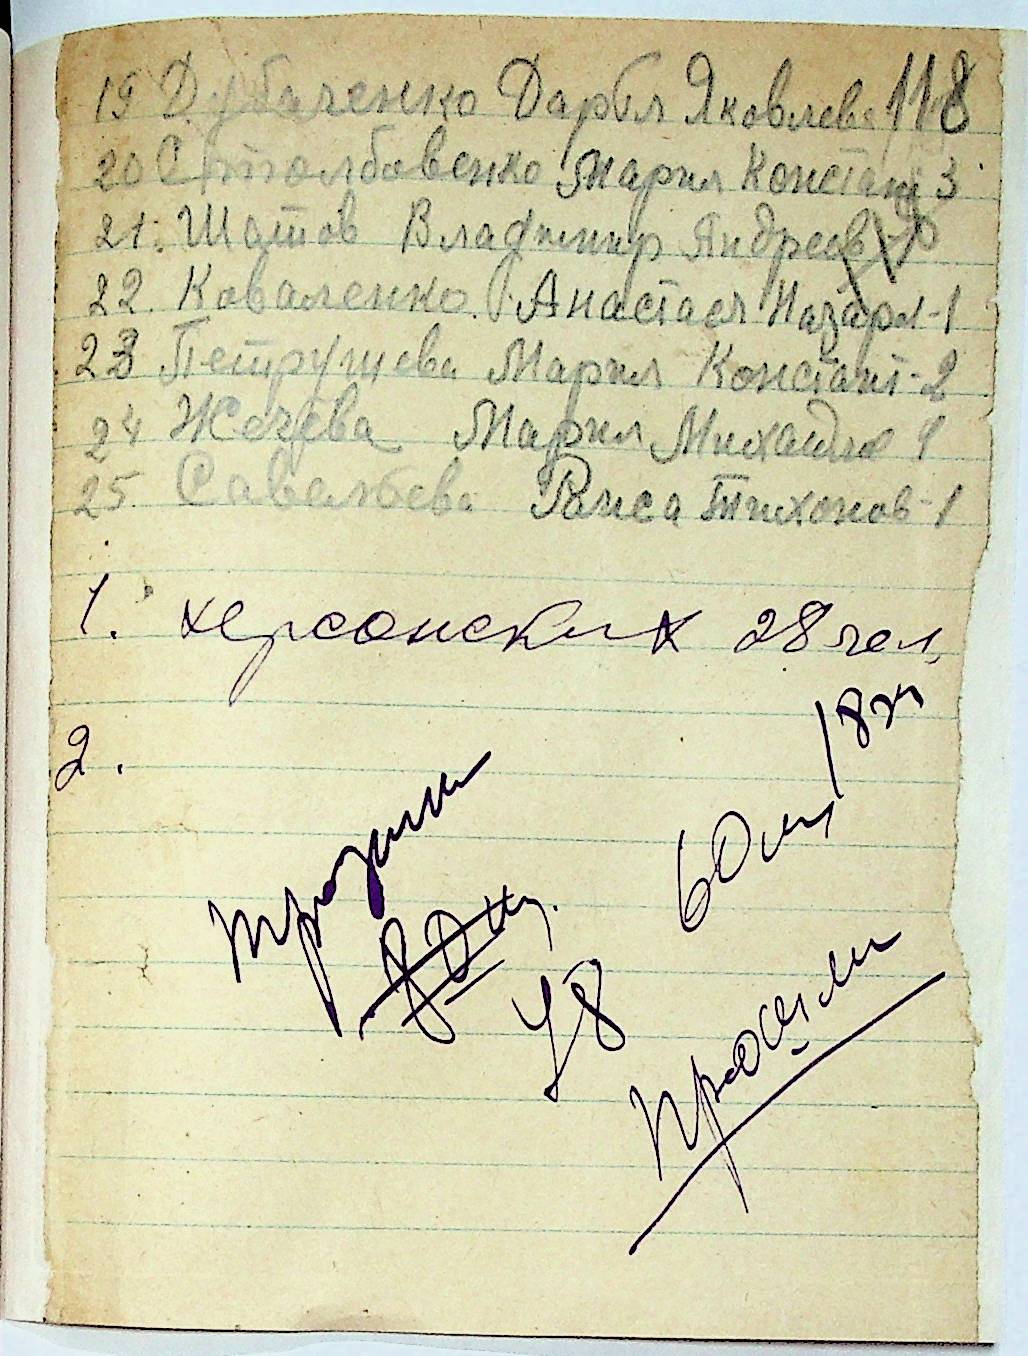 19 Дубаченко Дарья Яковлевн 118
20 Столбовенко Мария Констант 3
21. Шатов Владимир Яндреев
22. Коваленко Анастасия Назарл-1
23 Петрушева Мария Констант-2
24 Жечева Мария Михайло
25. Савельева Раиса Тихонов-1
1. херсонских 28 чел,
2.
18
60
48